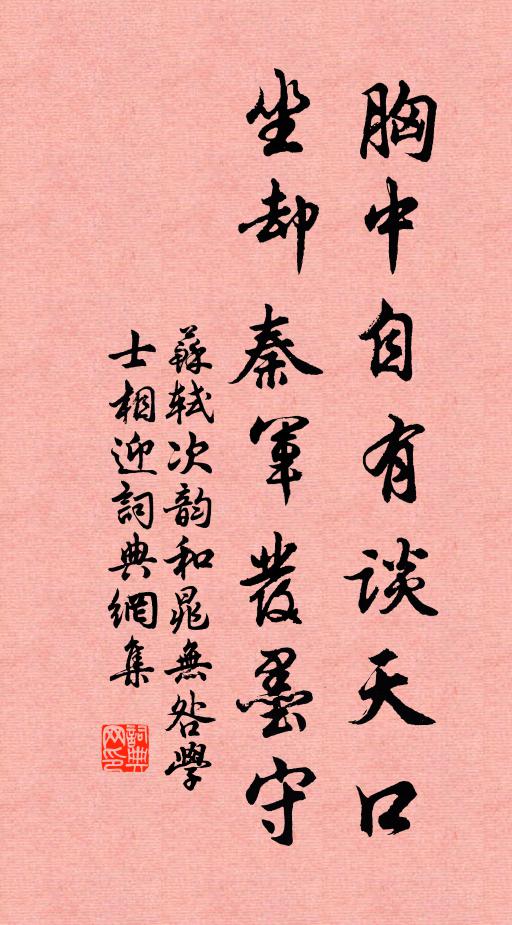 胸中自有談天口
坐却秦軍發墨守
蘇軾次韵和晁無咎學
士相迎詞典網集
詞典网印